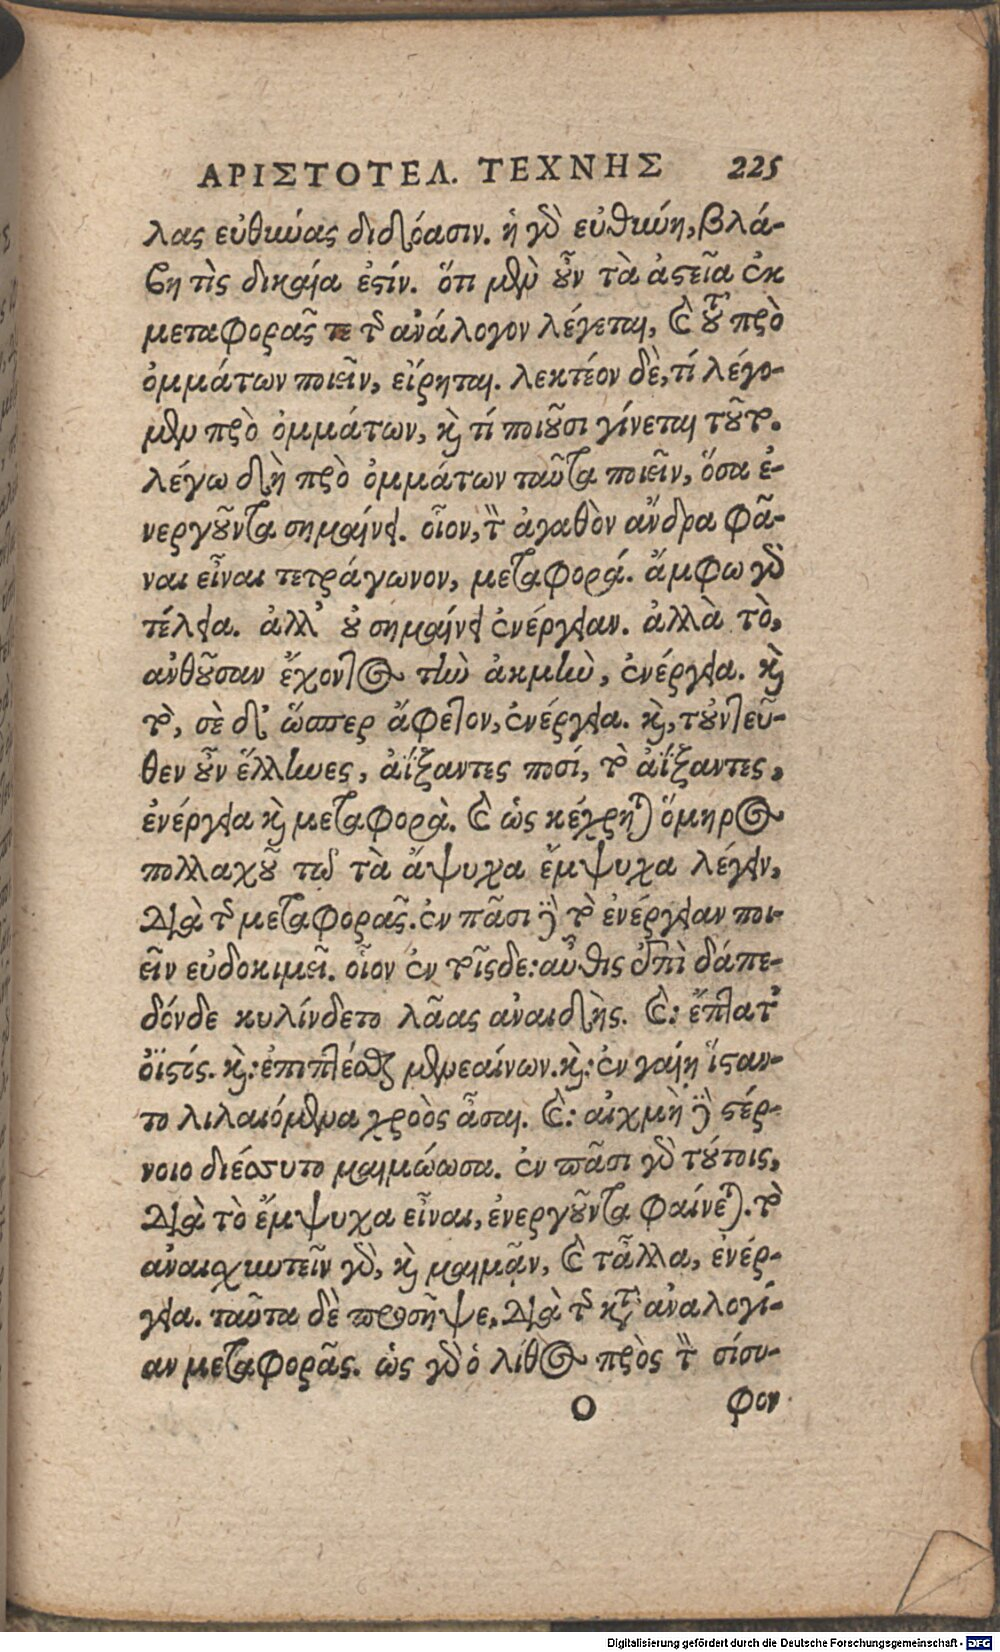 ΑΡΙΣΤΟΤΕΛ. ΤΕΧΝΗΣ 225
λας εὐθύνας διδόασιν. ἡ γὸ εὐθύνη, βλά-
βη τὶς δικαία ἐςίν. ὅτι μὲν οὖν τὰ ἀςεῖα ἐκ
μεταφορᾶς τε τῆς ἀνάλογον λέγεται, καὶ τοῦ πρὸ
ὀμμάτων ποιεῖν, εἴρηται. λεκτέον δὲ, τί λέγο-
μεν πρὸ ὀμμάτων, καὶ τί ποιοῦσι γίνεται τοῦτο.
λέγω δὴ πρὸ ὀμμάτων ταῦτα ποιεῖν, ὅσα ἐ-
νεργοῦντα σημαίνει. οἷον, τὸν ἀγαθὸν ἄνδρα φᾶ-
ναι εἶναι τετράγωνον, μεταφορά. ἄμφω γὸ
τέλεια. ἀλλ' οὐ σημαίνει ἐνέργειαν. ἀλλὰ τὸ,
ἀνθοῦσαν ἔχοντος τὴν ἀκμὴν, ἐνέργεια. καὶ
τὸ, σὲ δ' ὥσπερ ἄφετον, ἐνέργεια. καὶ, τοὐντεῦ-
θεν οὖν ἕλληνες, ἀΐξαντες ποσί, τὸ ἀΐξαντες,
ἐνέργεια καὶ μεταφορὰ. καὶ ὡς κέχρηται ὅμηρος
πολλαχοῦ τῷ τὰ ἄψυχα ἔμψυχα λέγειν,
διὰ τῆς μεταφορᾶς. ἐν πᾶσι δὲ τὸ ἐνέργειαν ποι-
εῖν εὐδοκιμεῖ. οἷον ἐν τοῖςδε: αὖθις ἐπὶ δάπε-
δόνδε κυλίνδετο λᾶας ἀναιδὴς. καὶ: ἔπτατ'
ὀϊςός. καὶ: ἐπιπτέσθαι μενεαίνων. καὶ: ἐν γαίῃ ἵςαν-
το λιλαιόμενα χροὸς ἆσαι. καὶ: αἰχμὴ δὲ ςέρ-
νοιο διέσσυτο μαιμώωσα. ἐν πᾶσι γὸ τούτοις,
διὰ τὸ ἔμψυχα εἶναι, ἐνεργοῦντα φαίνεται. τὸ
ἀναισχυντεῖν γὸ, καὶ μαιμᾷν, καὶ τἆλλα, ἐνέρ-
γεια. ταῦτα δὲ προσῆψε, διὰ τῆς κατ' ἀναλογί-
αν μεταφορᾶς. ὡς γὸ ὁ λίθος πρὸς τὸν σίσυ-
O φον
Digitalisierung gefördert durch die Deutsche Forschungsgemeinschaft - DFG